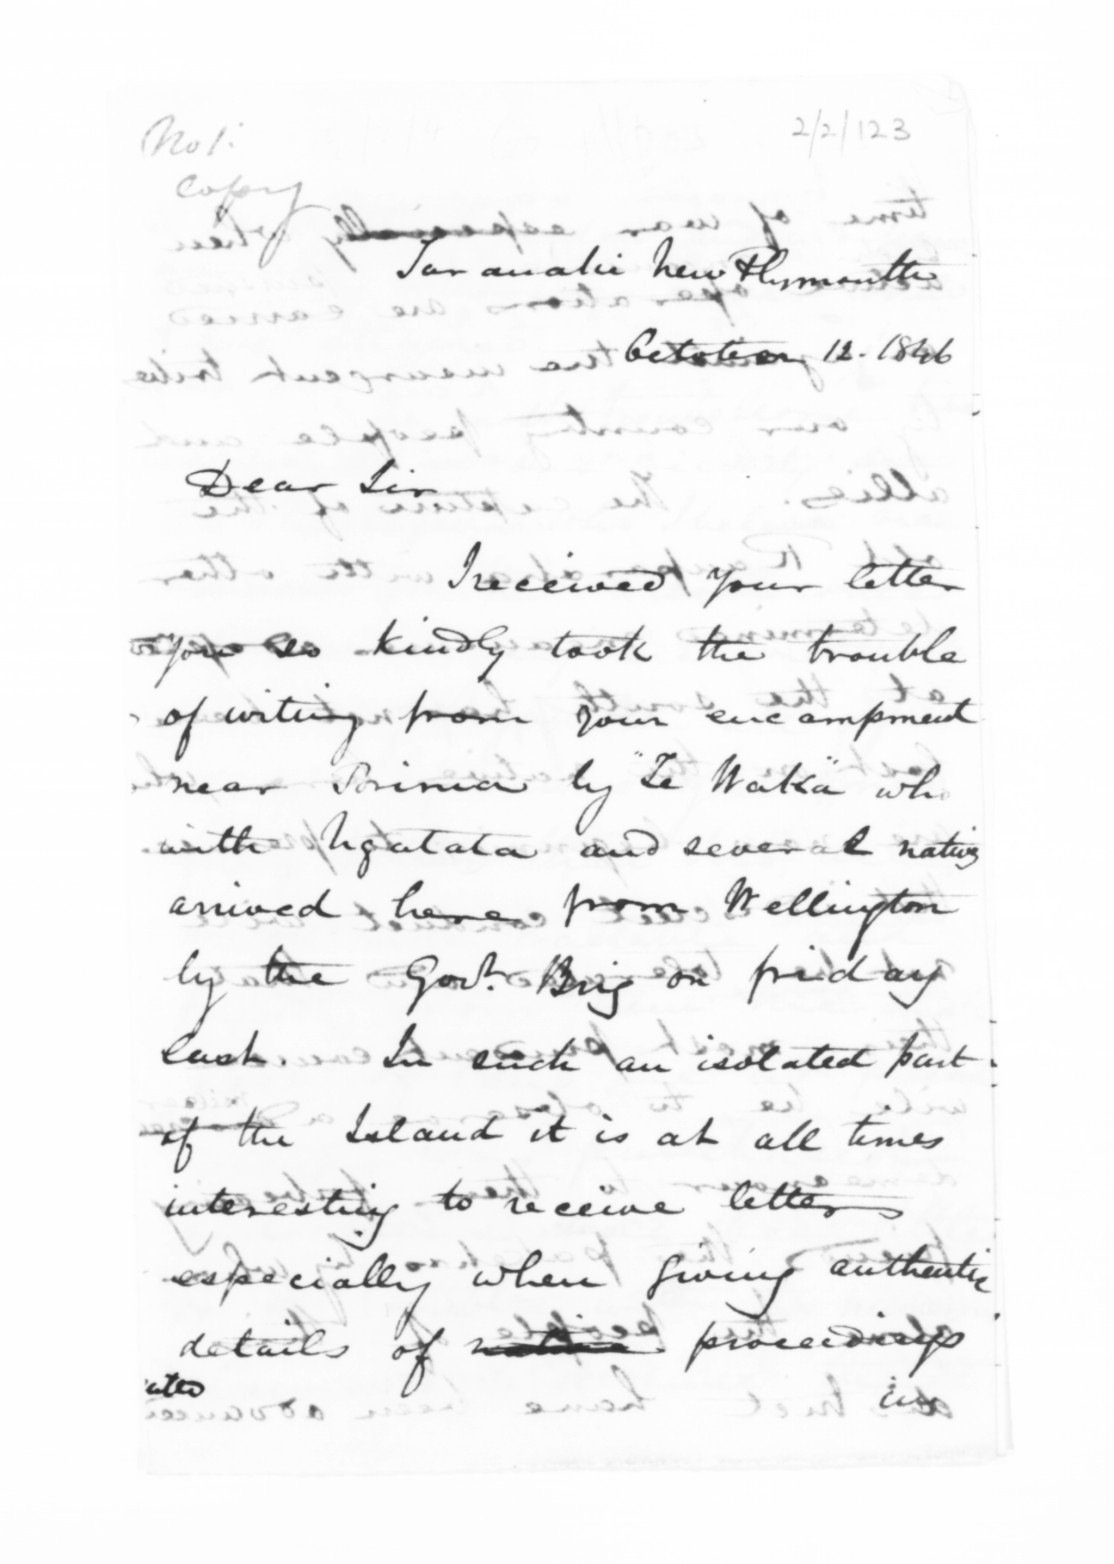 No 1.
2/2/123
Copy
Taranaki New Plymouth
October 12. 1846
Dear Sir
I received your letter
you so kindly took the trouble
of writing from your encampment
near Porirua by "Te Waka" who
with Ngatata and several natives
arrived here from Wellington
by the Govt. Brig on friday
last. In such an isolated part
of the Island it is at all times
interesting to receive letters
especially when giving authentic
details of native proceedings
in